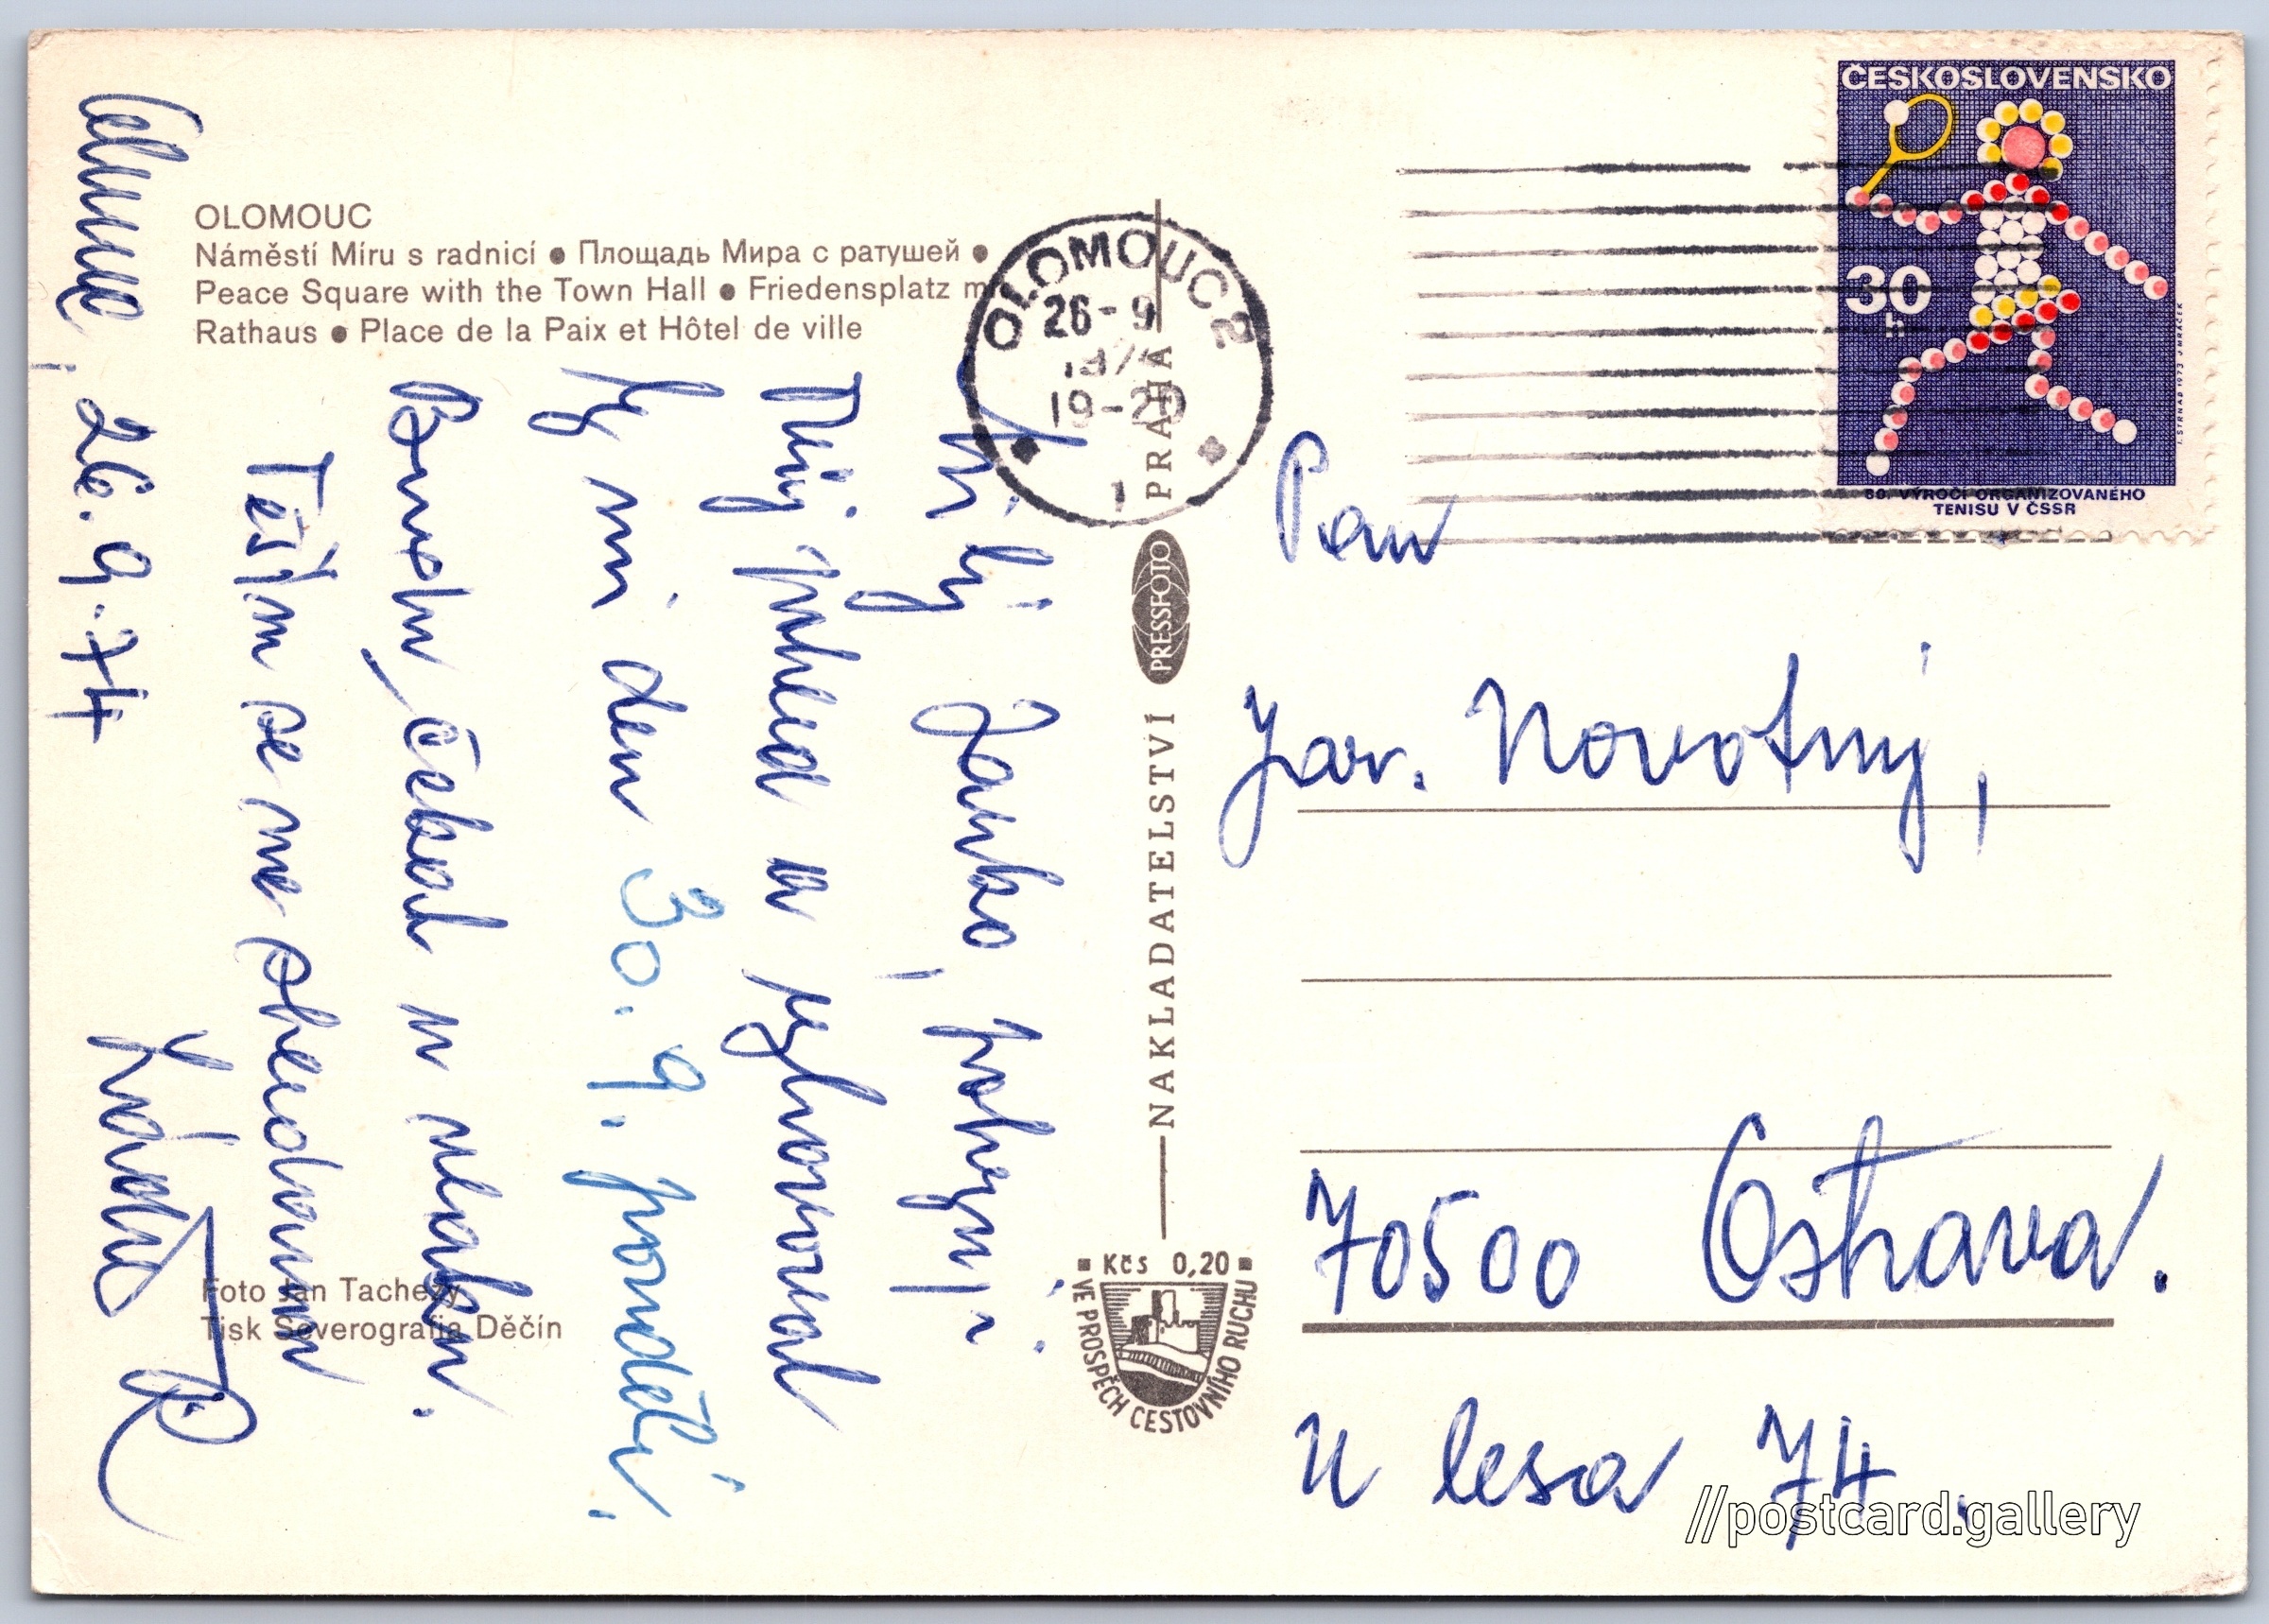 OLOMOUC
Náměstí Míru s radnicí ● Площадь Мира с ратушей ●
Peace Square with the Town Hall ● Friedensplatz m
Rathaus ● Place de la Paix et Hôtel de ville
Milý Jarko,
Můj pohled a
mi den 30. 9. pondělí.
čekal u vlaku.
Těším se na shledanou
26. 9. 74
Foto Jan Tachezy
Tisk Severografia Děčín
OLOMOUC 2
26-9
1974
19-20
1
NAKLADATELSTVÍ PRESSFOTO PRAHA
Kčs 0,20
VE PROSPĚCH CESTOVNÍHO RUCHU
ČESKOSLOVENSKO
30
h
80. VÝROČÍ ORGANIZOVANÉHO
TENISU V ČSSR
I. STRNAD 1973 J. MRÁČEK
Pan
Jar. Novotný,
70500 Ostrava.
U lesa 74.
//postcard.gallery